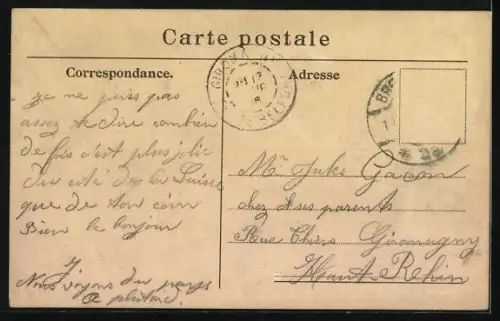 Carte postale
Correspondance.
Adresse
Je ne puis pas
assez te dire combien
de fois c'est plus jolie
du coté de la Suisse
que de ton coin
Bien le bonjour
J
Nous voyons du pays
A plutard.
Mr Jules
chez ses parents
Rue Thiers Giromagny
Haut-Rehin